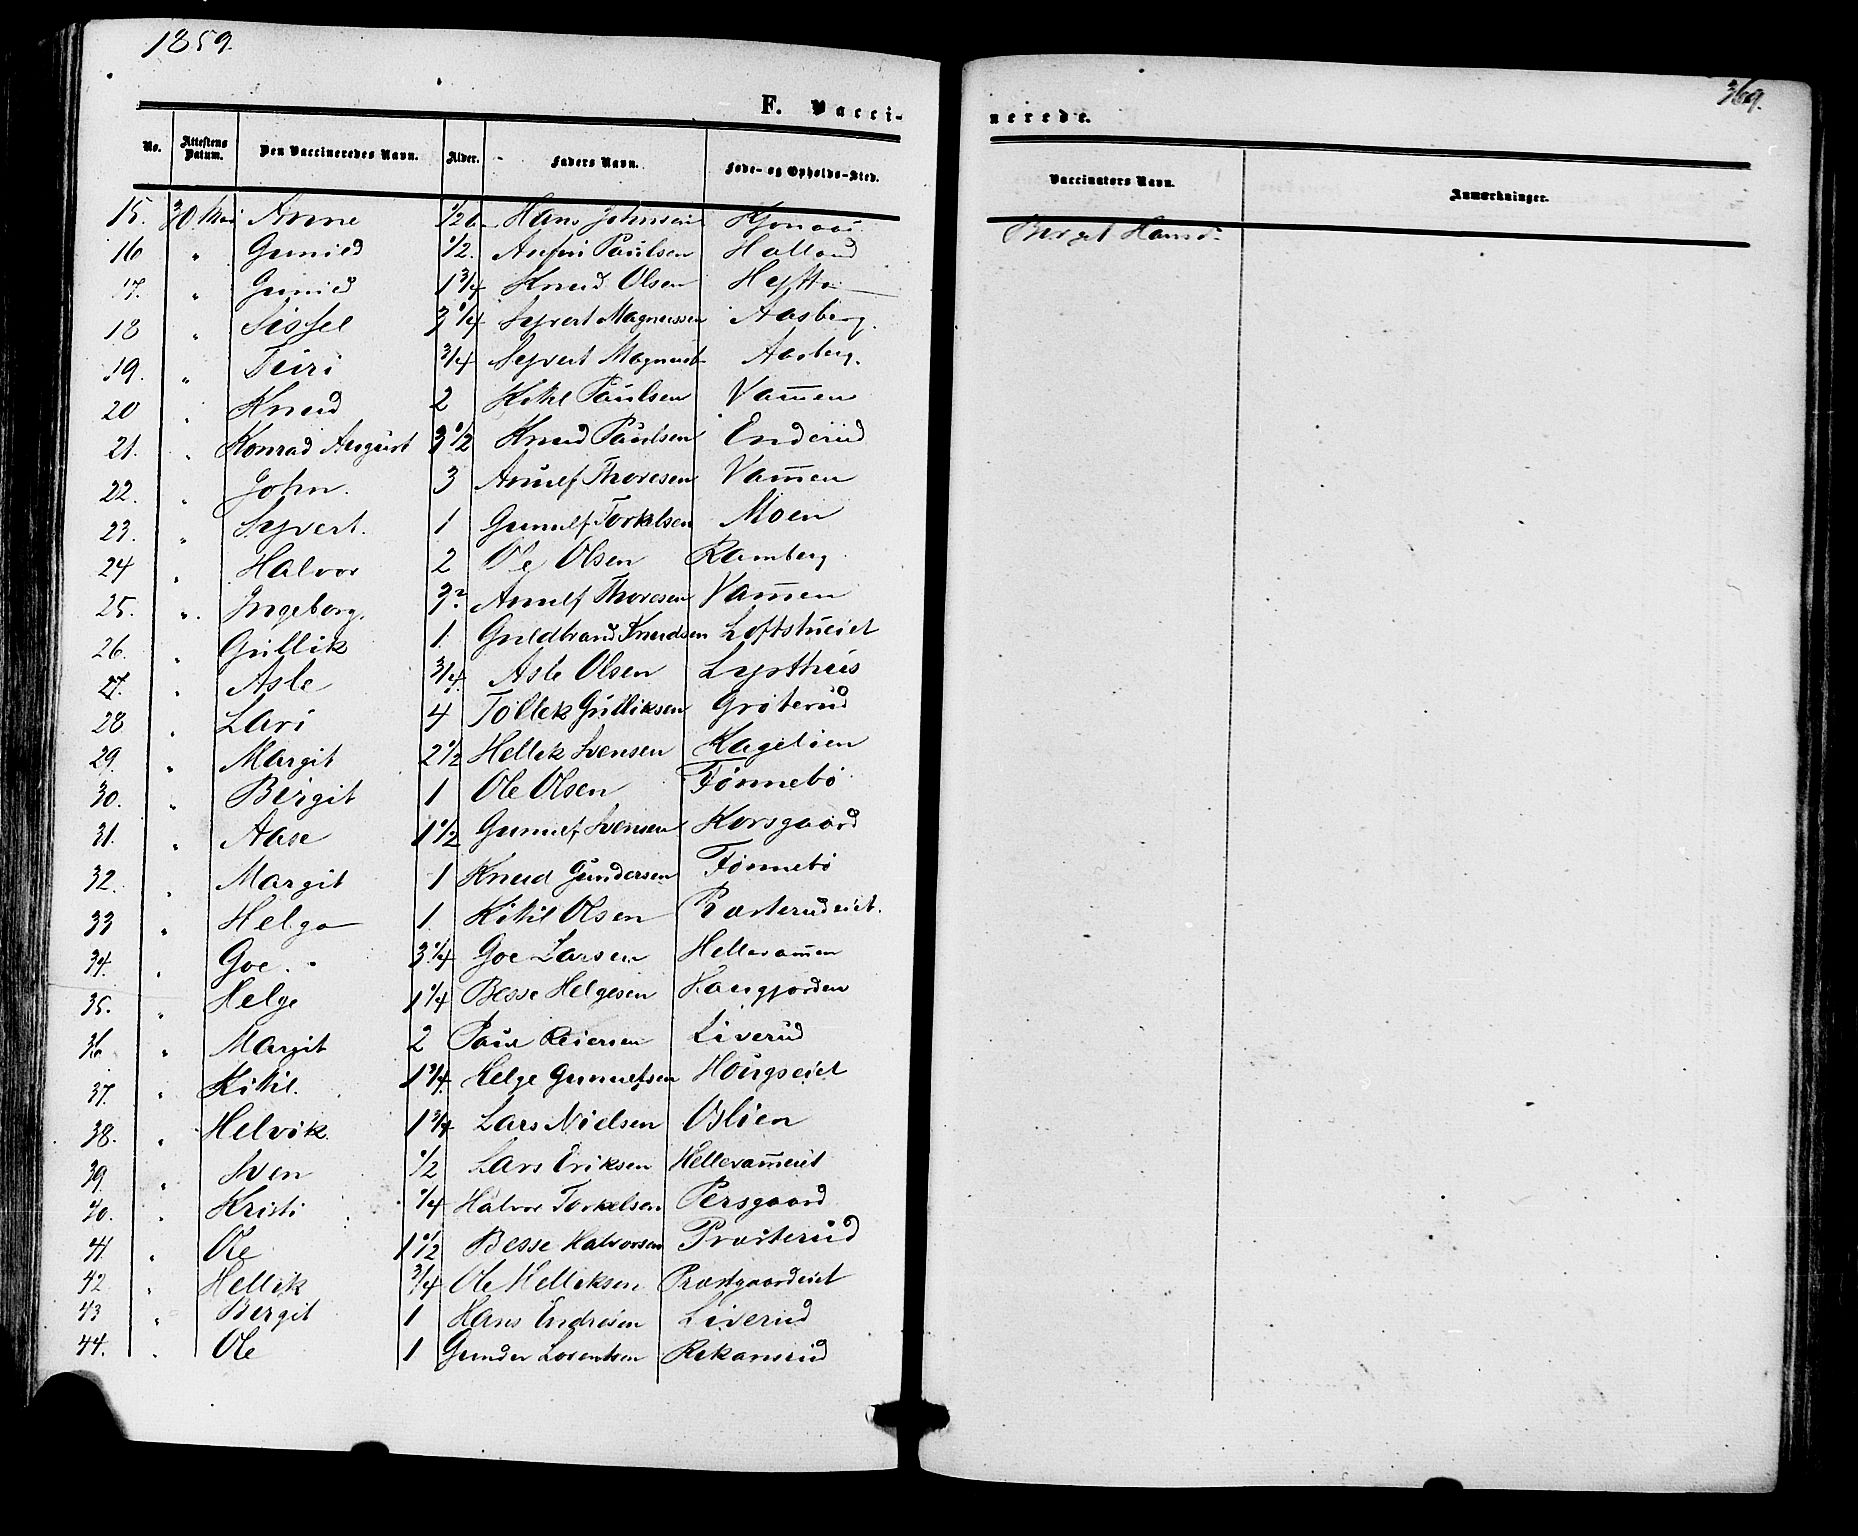 1859.
369.
F. Vacci-
nerede.
No. Attestens Datum. Den Vaccineredes Navn. Alder. Faders Navn. Føde- og Opholds-Sted.
Vaccinators Navn. Anmærkninger.
15. 30 Mai Anne 1/2 Hans Johnsen
Bergit Hansd.
16 " Gunild 1/2. Paulsen Halland
17. " Gunild 1 3/4 Knud Olsen Hefte
18 " Sissel 3 1/4 Syvert Magnussen Aasberg.
19. " Guri 3/4 Syvert Magnust Aasberg.
20 " Knud 2 Kitil Paulsen Vam̄en
21. " Konrad August 3 1/2 Knud Paulsen Enderud
22. " John. 3 Anulf Thoresen Vam̄en
23. " Syvert. 1 Gunulf Torkelsen Moen
24 " Halvor 2 Ole Olsen Ramberg
25. " Ingeborg. 3. Anulf Thoresen Vam̄en
26. " Gullik 1. Guldbrand Knudsen Loftstueiet
27. " Asle 3/4. Asle Olsen Lysthus
28 " Lari 4 Tollek Gulliksen Grøterud
29. " Margit 2 1/2 Hellik Svensen Kagelien
30. " Birgit 1 Ole Olsen Tønnebø
31. " Aase 1 1/2 Gunulf Svensen Korsgaard
32. " Margit 1 Knud Gundersen Tønnebø
33 " Helga 1. Kitil Olsen Prœsterudeiet.
34. " Goe. 3 1/4 Goe Larsen Hellevam̄en
35. " Helge 1 1/4 Besse Helgesen Haugjorden
36 " Margit 2 Paul Reiersen Liverud
37. " Kitil. 1 3/4. Helge Gunulfsen Hougseiet
38. " Helvik. 1 3/4 Lars Nielsen Oslien
39. " Sven 1/2 Lars Eriksen Hellevam̄eiet
40. " Kristi 1/4 Halvor Torkelsen Persgaard
41 " Ole 1 1/2 Besse Halvorsen Prœsterud
42 " Hellik 3/4 Ole Helliksen Prœstgaardeiet
43 " Bergit 1 Hans Endresen Liverud
44. " Ole 1 Gunder Lorentsen Rekansrud